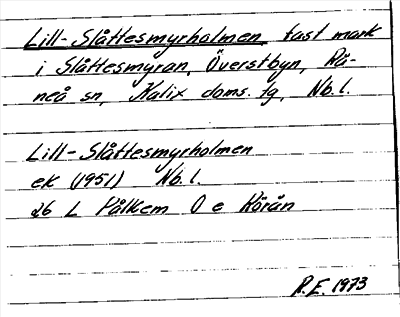 Lill-Slåttesmyrholmen, fast mark
i Slåttesmyran, Överstbyn, Rå-
neå sn, Kalix doms. tg, Nb.l.
Lill-Slåttesmyrholmen
ek (1951) Nb.l.
26 L Pålkem 0 e Rörån
R.E. 1973